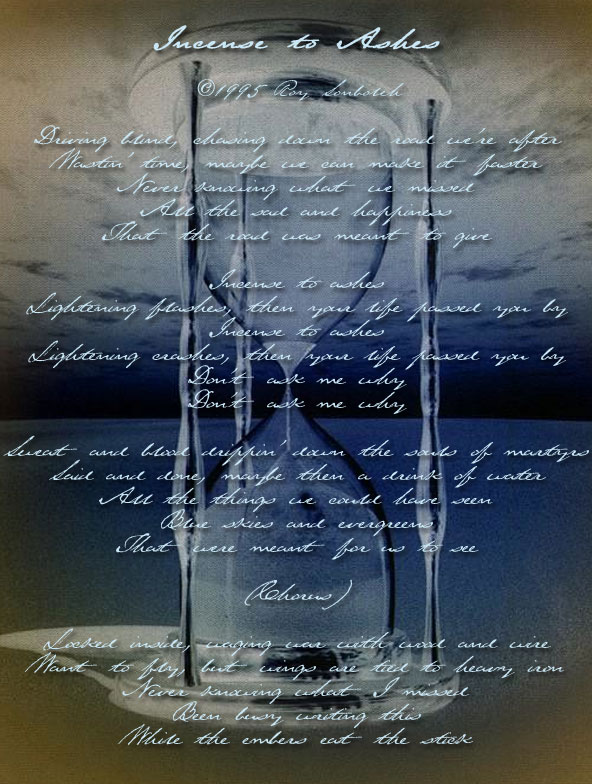 Incense to Ashes
©1995 Roy
Driving blind, chasing down the road we're after
Wastin' time, maybe we can make it faster
Never knowing what we missed
All the sad and happiness
That the road was meant to give
Incense to ashes
Lightening flashes, then your life passed you by
Incense to ashes
Lightening crashes, then your life passed you by
Don't ask me why
Don't ask me why
Sweat and blood drippin' down the souls of martyrs
Said and done, maybe then a drink of water
All the things we could have seen
Blue skies and evergreens
That were meant for us to see
(Chorus)
Locked inside, waging war with wood and wire
Want to fly, but wings are tied to heavy iron
Never knowing what I missed
Been busy writing this
While the embers eat the stick